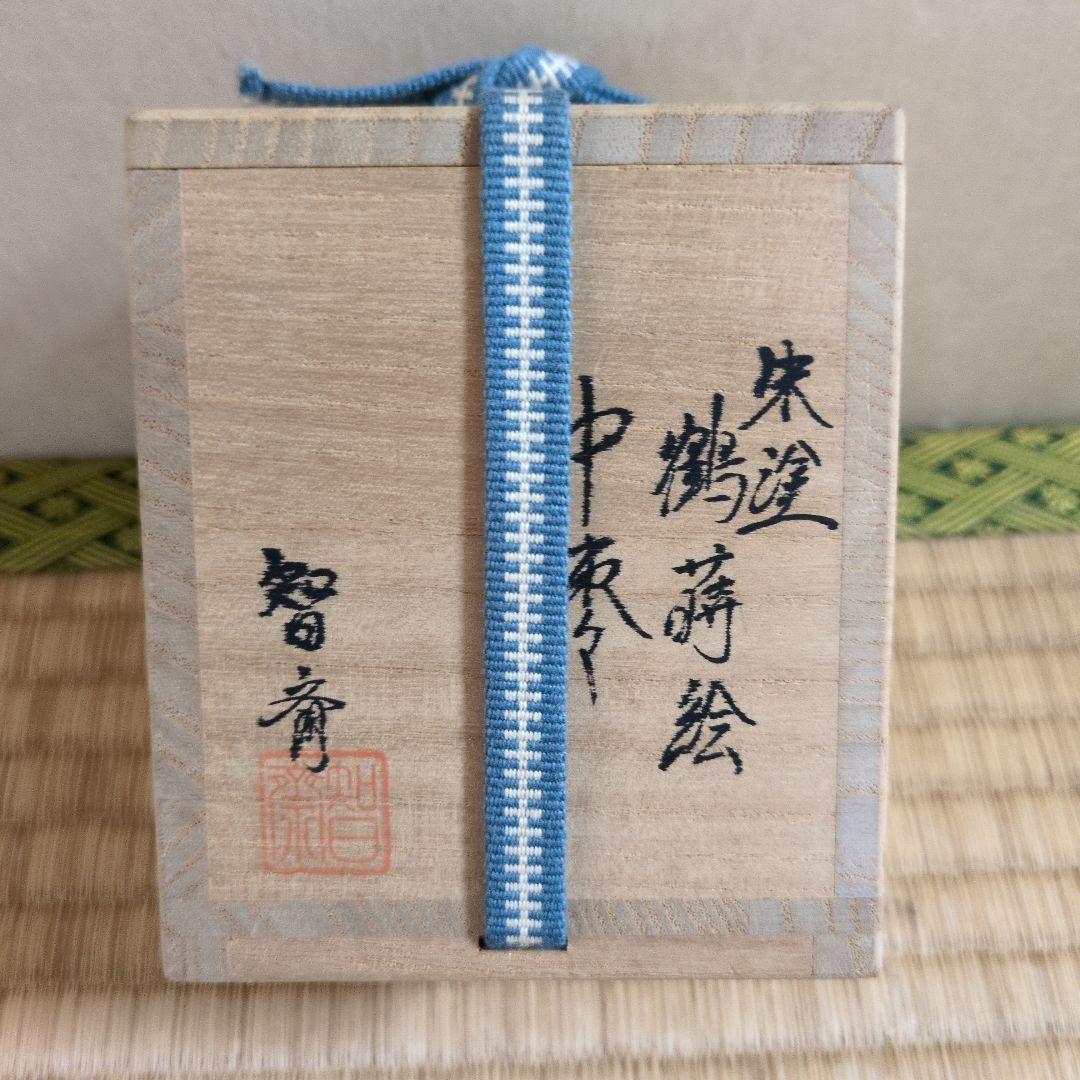 朱塗
鶴蒔絵
中棗
智斎
智斎